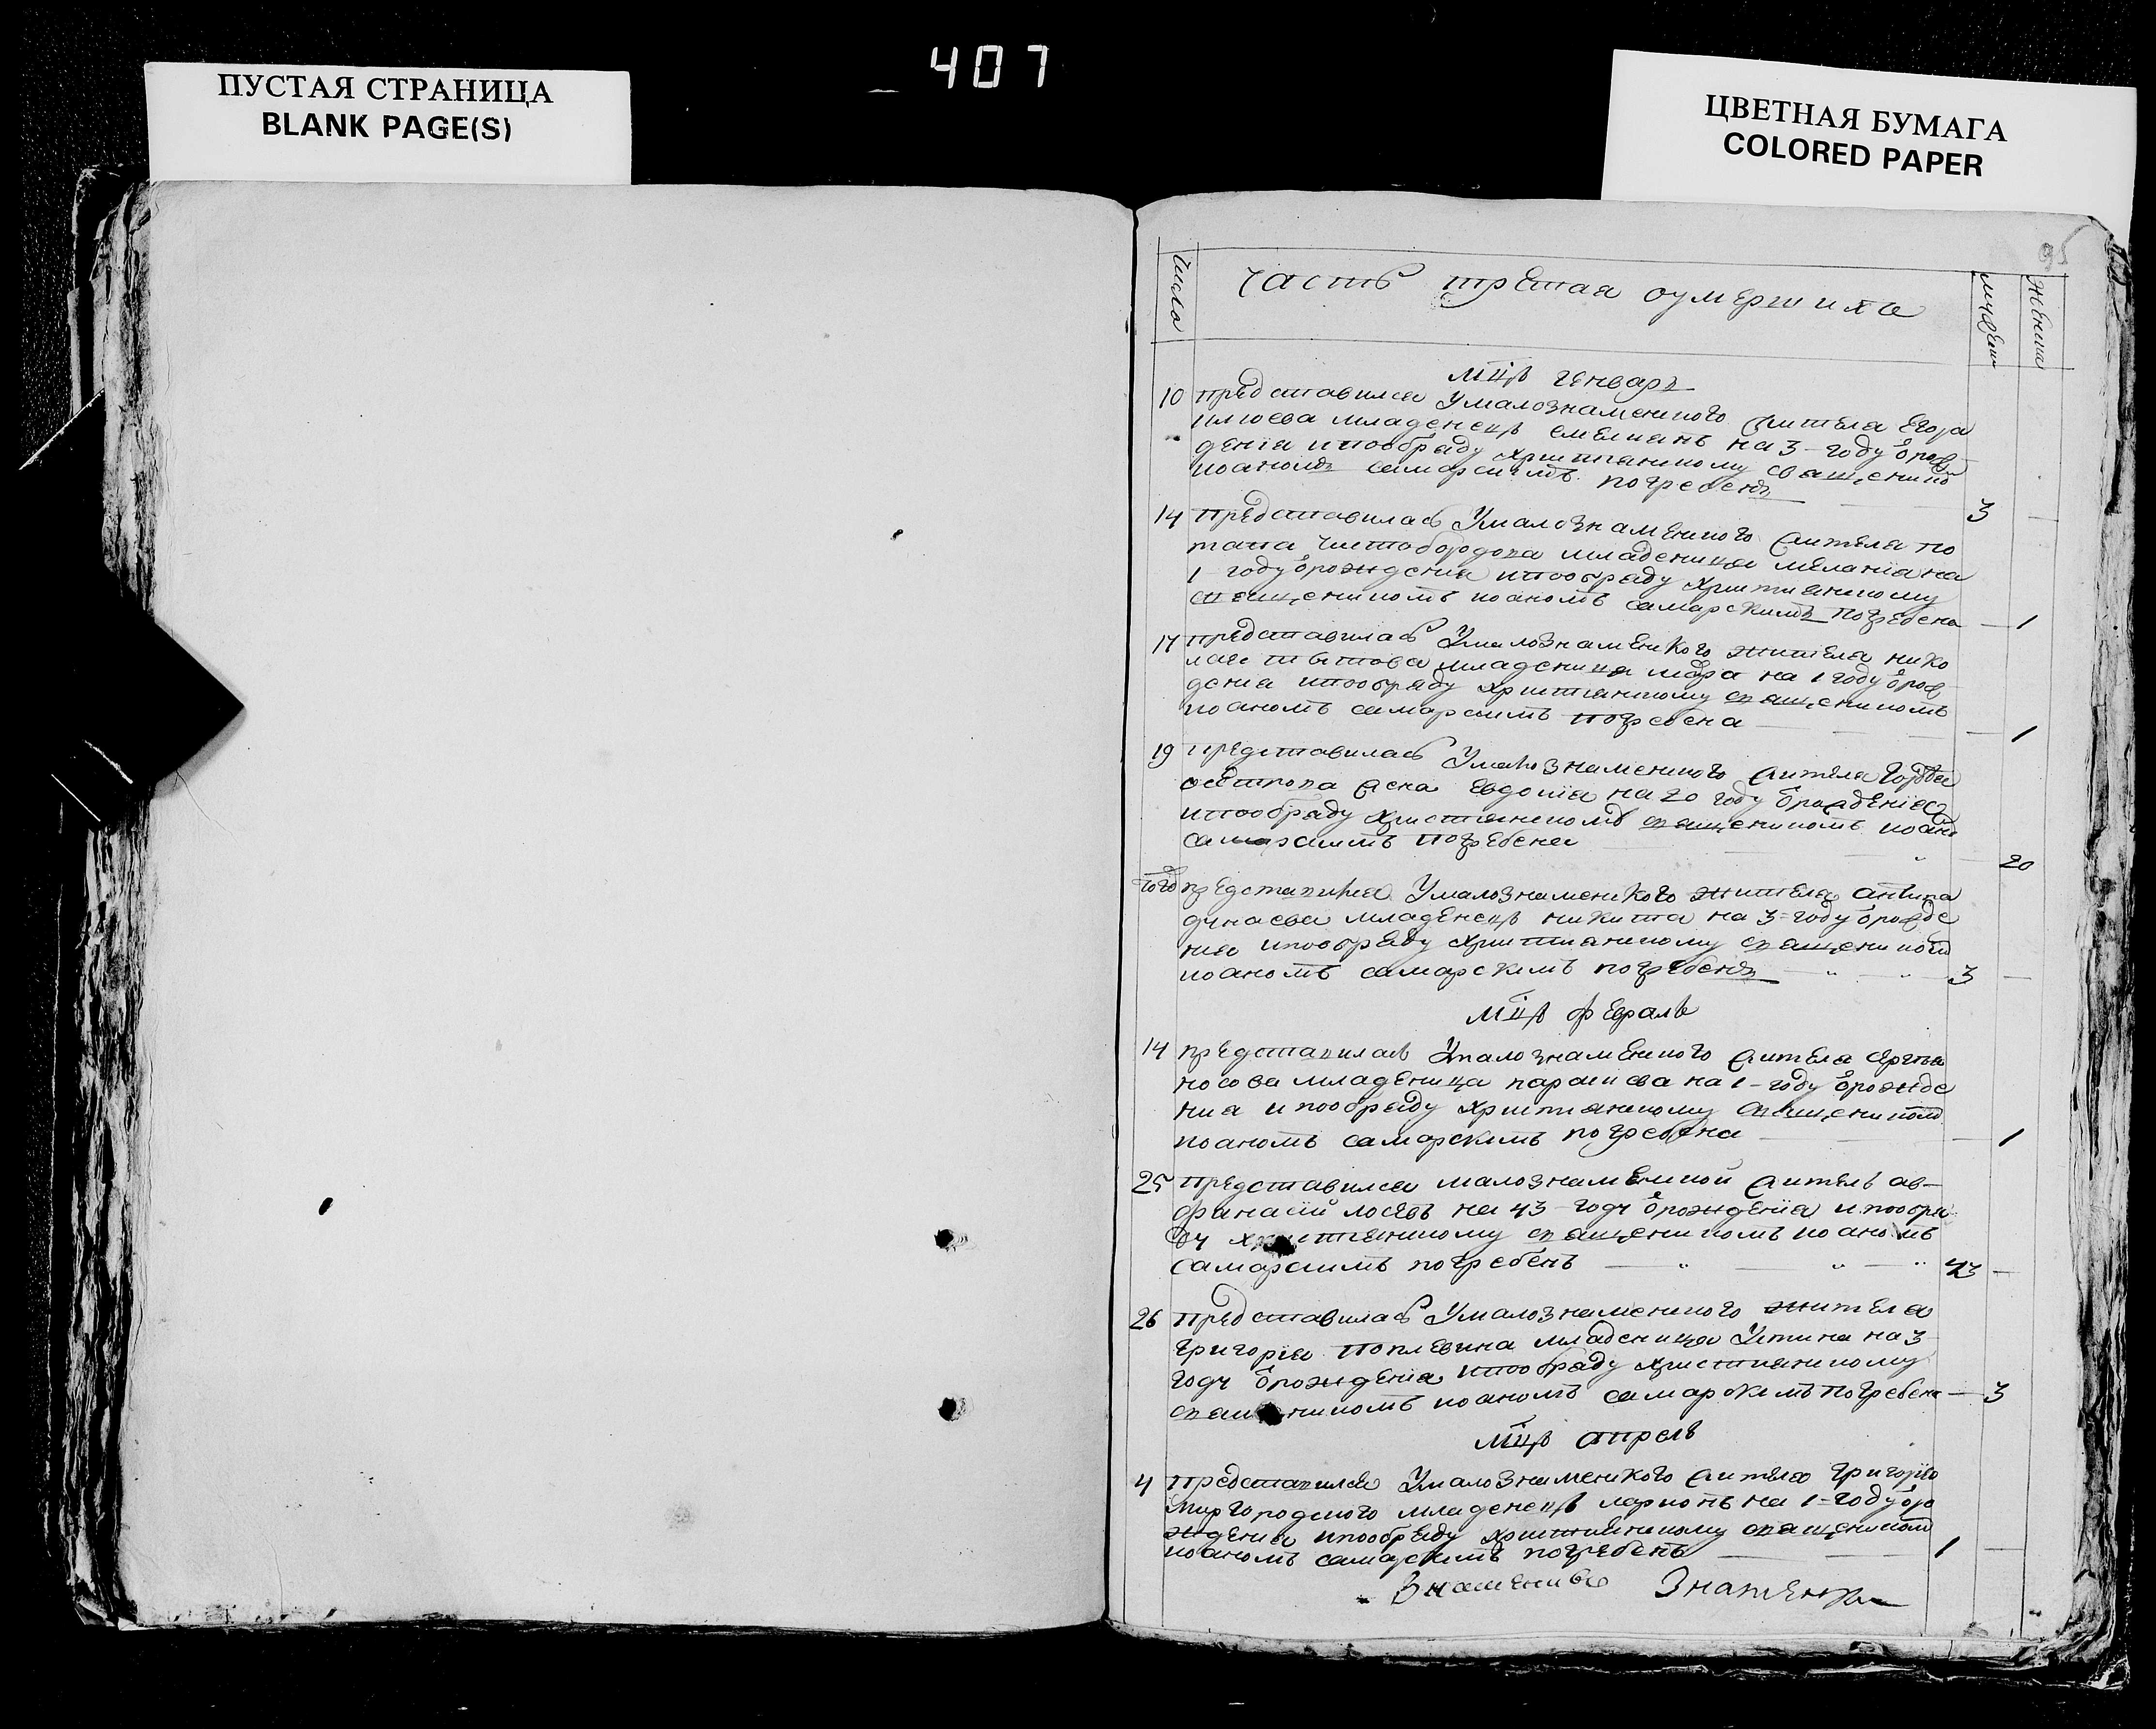 407
ПУСТАЯ СТРАНИЦА
BLANK PAGE(S)
ЦВЕТНАЯ БУМАГА
COLORED PAPER
95
число
часть третая оумершихъ
мужеска
женска
мцъ генварь
10 представися Умалознаменского жителя Егора
младенецъ емелианъ на 3-году орож
дения ипообряду христианскому священико
иоаномъ самарскимъ погребенъ
3 —
14 представилась Умалознаменского жителя по
тапа младеница мелания на
1 году орождения ипообряду христианскому
священикомъ иоаномъ самарскимъ погребена — 1
17 представилась Умалознаменского жителя нико
лая младеница на 1 году орож
дения ипообряду христианскому священикомъ
иоаномъ самарскимъ погребена — 1
19 представилась Умалознаменского жителя
жена евдокия на 20 году орождения
ипообряду христианскомъ священикомъ иоано
самарскимъ погребена — 20
того представися Умалознаменского жителя антипа
младенецъ никита на 3-годуорожде
ния ипообряду христианскому священикомъ
иоаномъ самарскимъ погребенъ 3 —
мцъ февраль
14 представилась Умалознаменского жителя
носова младеница параскева на 1-году орожде
ния ипообряду христианскому священикомъ
иоаномъ самарскимъ погребена — 1
25 представися малознаменской житель ав-
фанасий лосевъ на 43 году орождения ипообря
ду христианскому священикомъ иоаномъ
самарскимъ погребенъ 43 —
26 представилась Умалознаменского жителя
григория младеница Устина на 3
году орождения ипообряду христианскому
священикомъ иоаномъ самарскимъ погребена — 3
мцъ апрель
4 представися Умалознаменского жителя григория
миргородского младенецъ ларионъ на 1-году оро
ждения ипообряду христианскому священикомъ
иоаномъ самарскимъ погребенъ 1 —